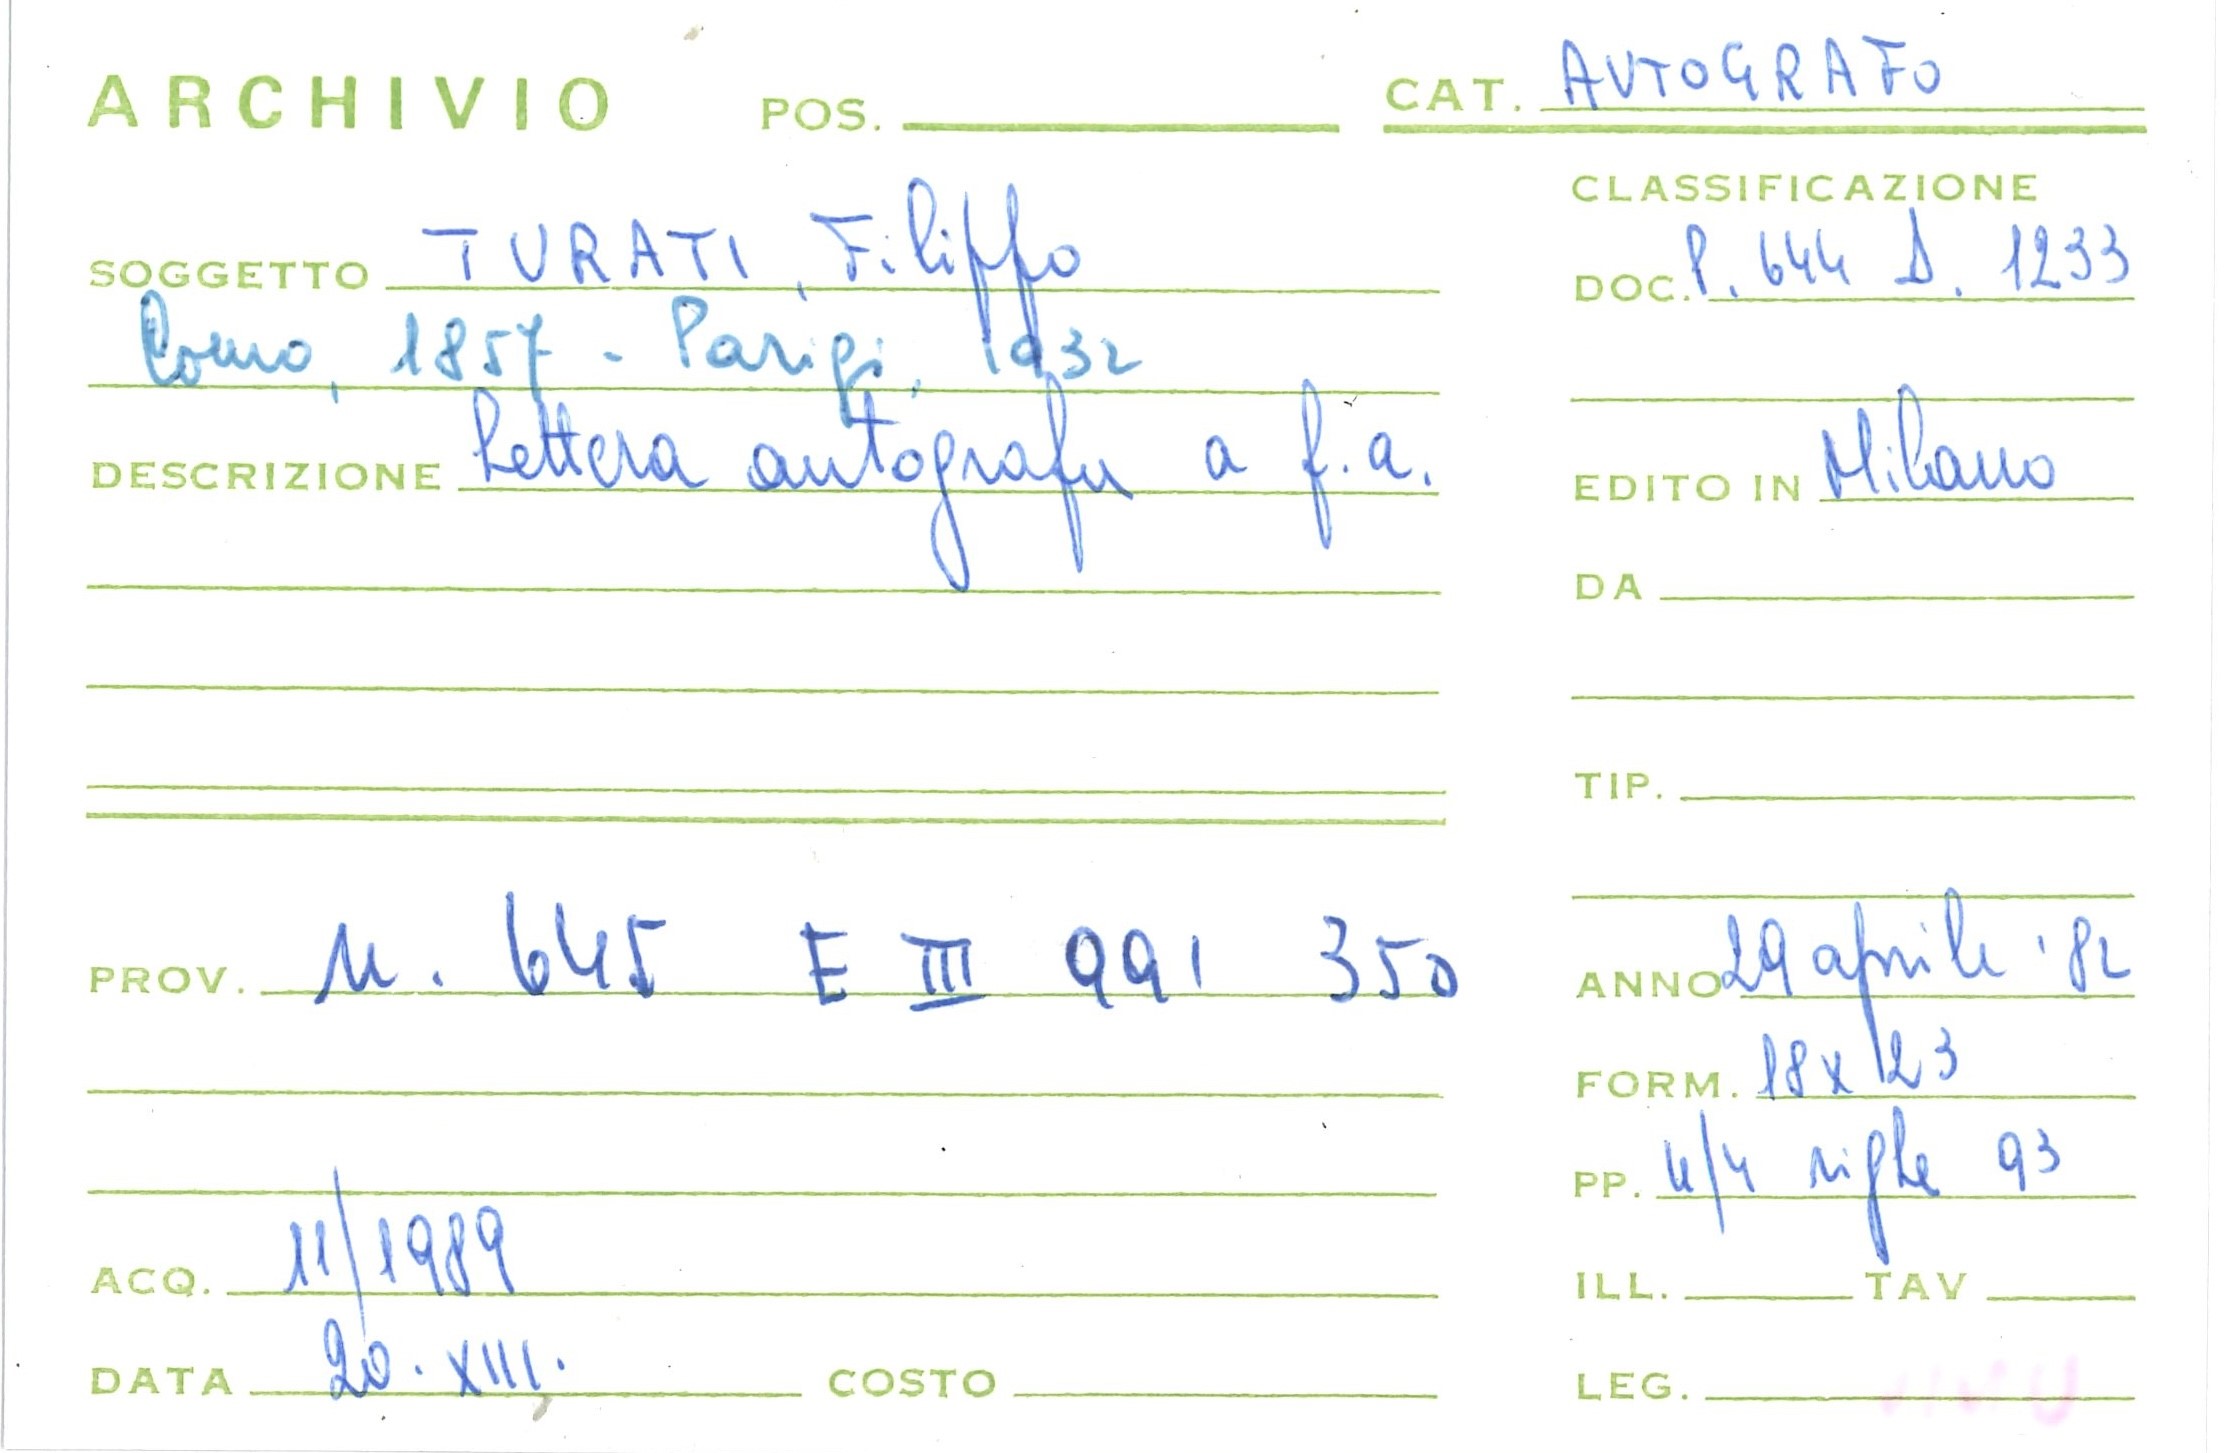 ARCHIVIO POS. CAT. AUTOGRAFO
CLASSIFICAZIONE
SOGGETTO TURATI, Filippo
DOC. P. 644 D. 1233
Como, 1857 - Parigi, 1932
DESCRIZIONE Lettera autografa a f.a.
EDITO IN Milano
DA
TIP.
PROV. M. 645 E III 991 350
ANNO 29 aprile '82
FORM. 18x23
PP. 4/4 righe 93
ACQ. 11/1989
ILL. TAV
DATA 20.XIII. COSTO
LEG.